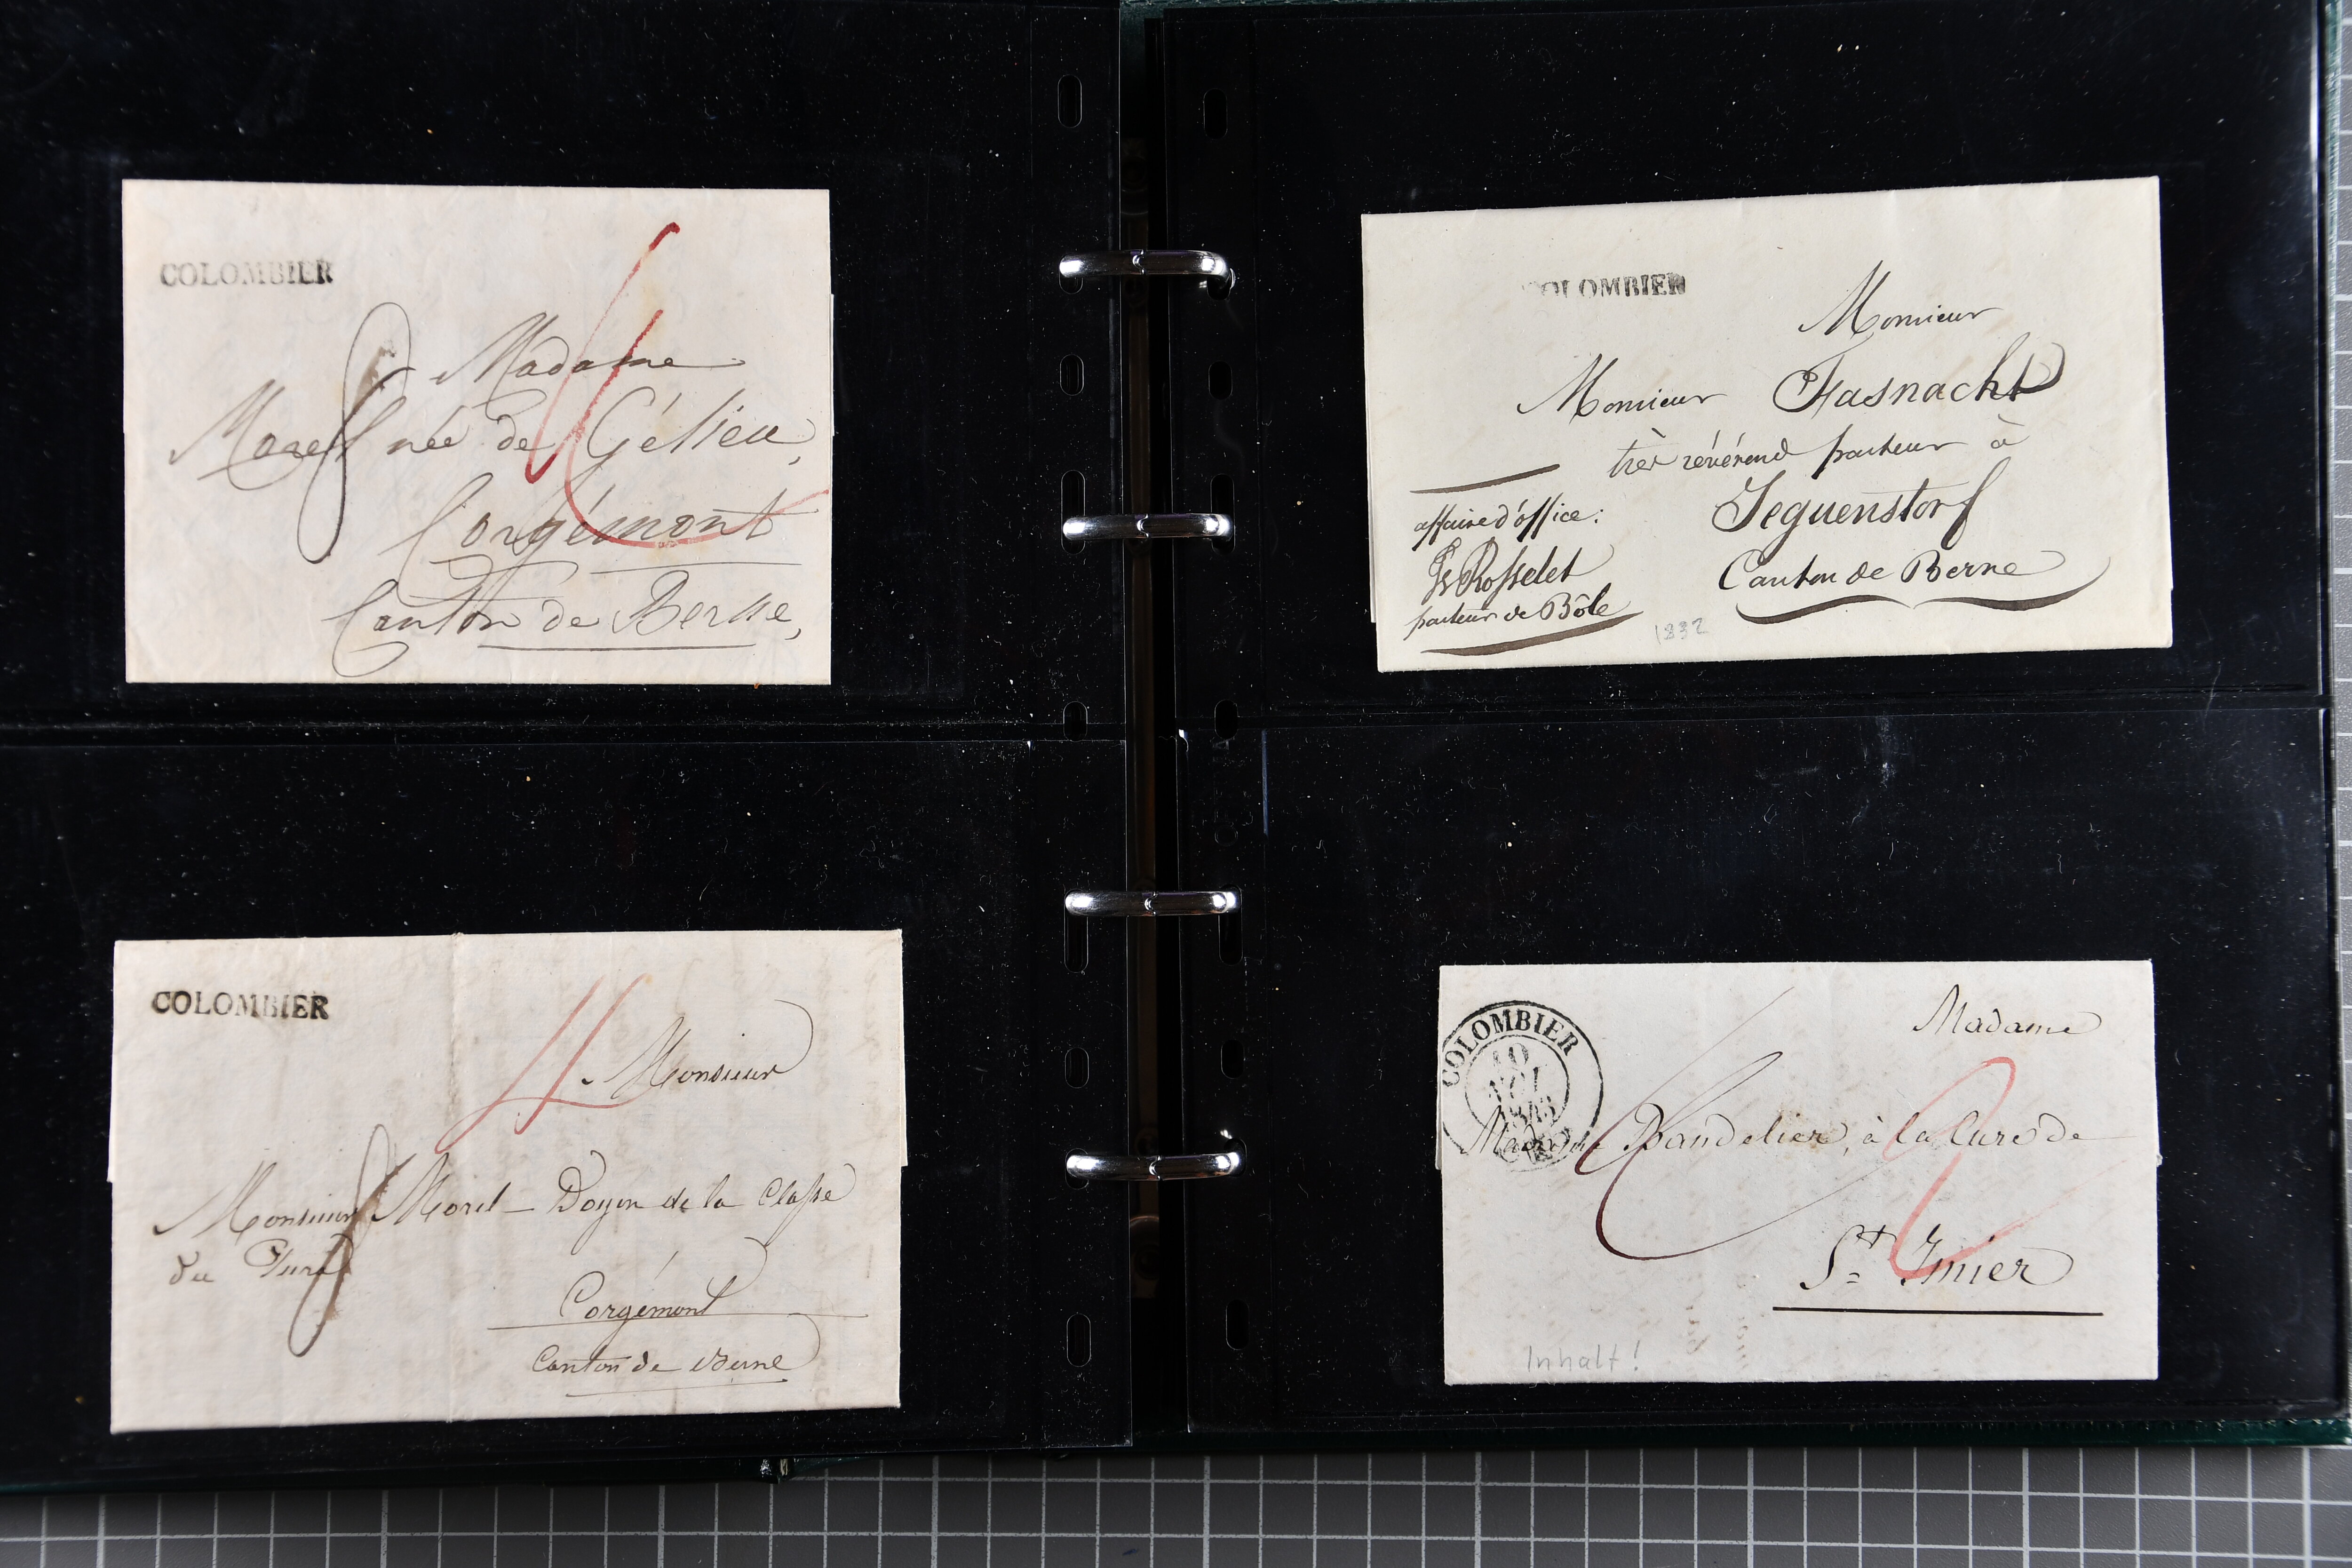 COLOMBIER
Madame
Morel née de Gélieu,
Corgémont
Canton de Berne,
COLOMBIER
Monsieur
Monsieur Morel - Doyen de la Classe
du Jura
Corgémont
Canton de Berne
COLOMBIER
Monsieur
Monsieur Fasnacht
très révérend pasteur à
Jeguenstorf
Canton de Berne
affaire d'office:
Rosselet
pasteur de Bôle
1832
COLOMBIER
10
Madame
Madame Bandelier, à la Cure de
St Imier
Inhalt!